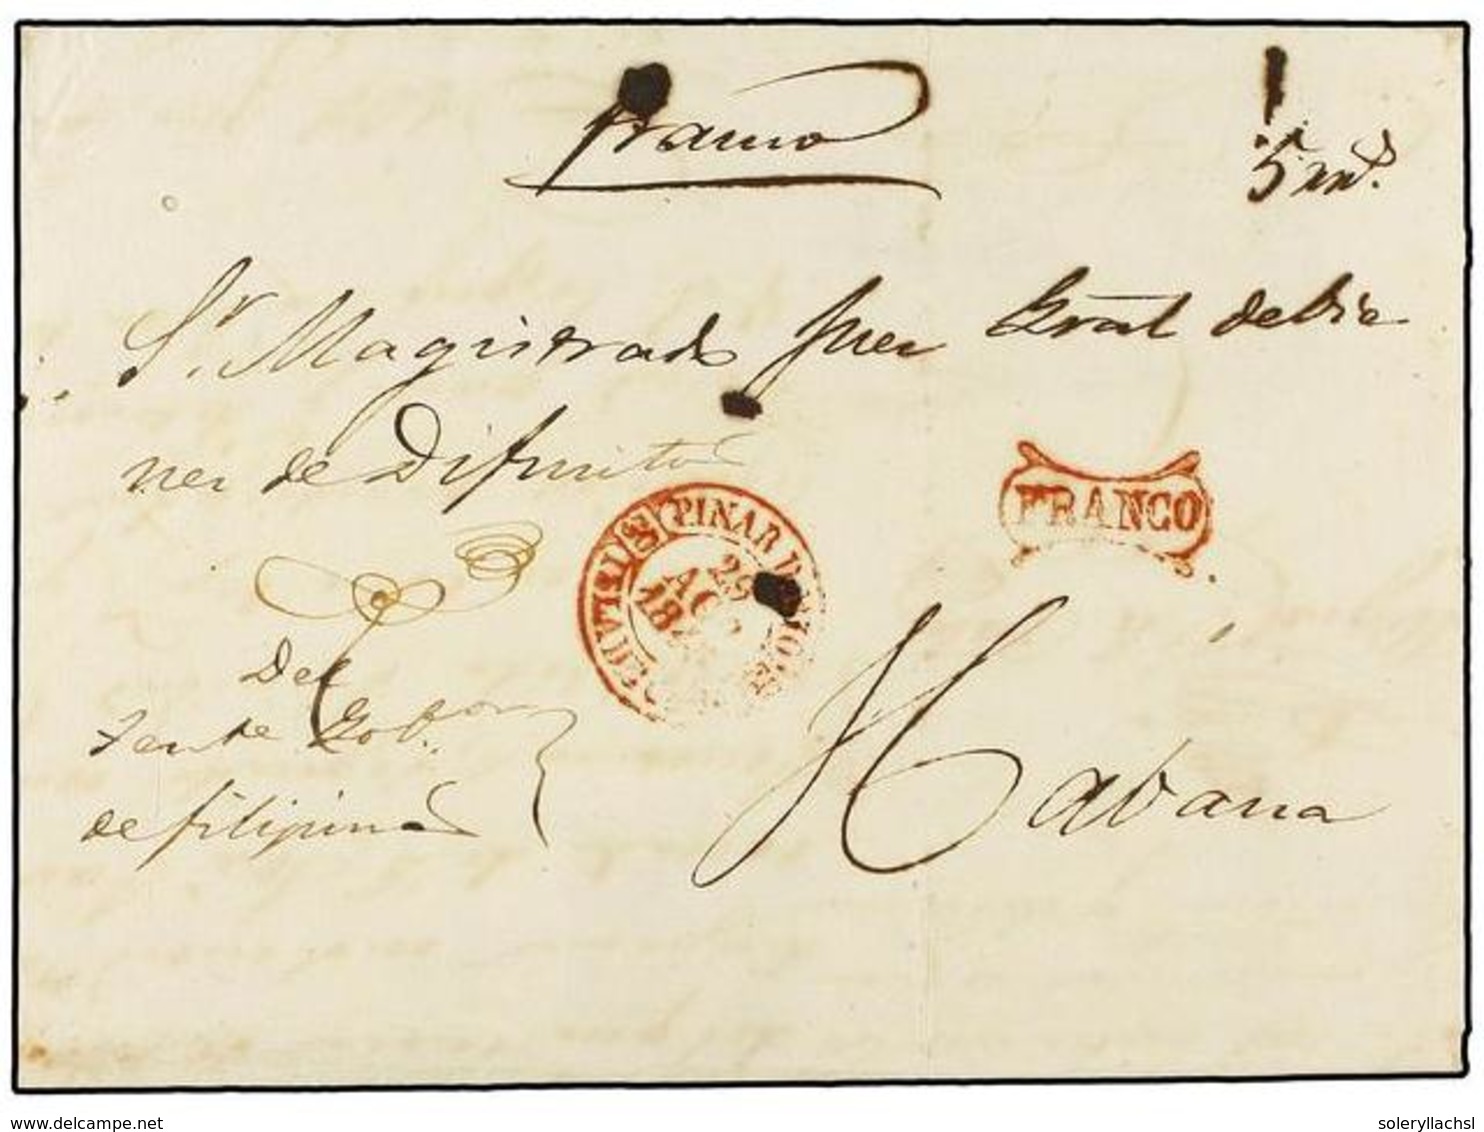 franco
5 rrs.
Sr. Magistrado Juez Gral de Bie
nes de Difuntos
FRANCO
PINAR D. RIO
29
AGO
184
ISLA DE CUBA
Del
Tente Gobor
de filipinas
Habana
delcampe.net
soleryllachsl